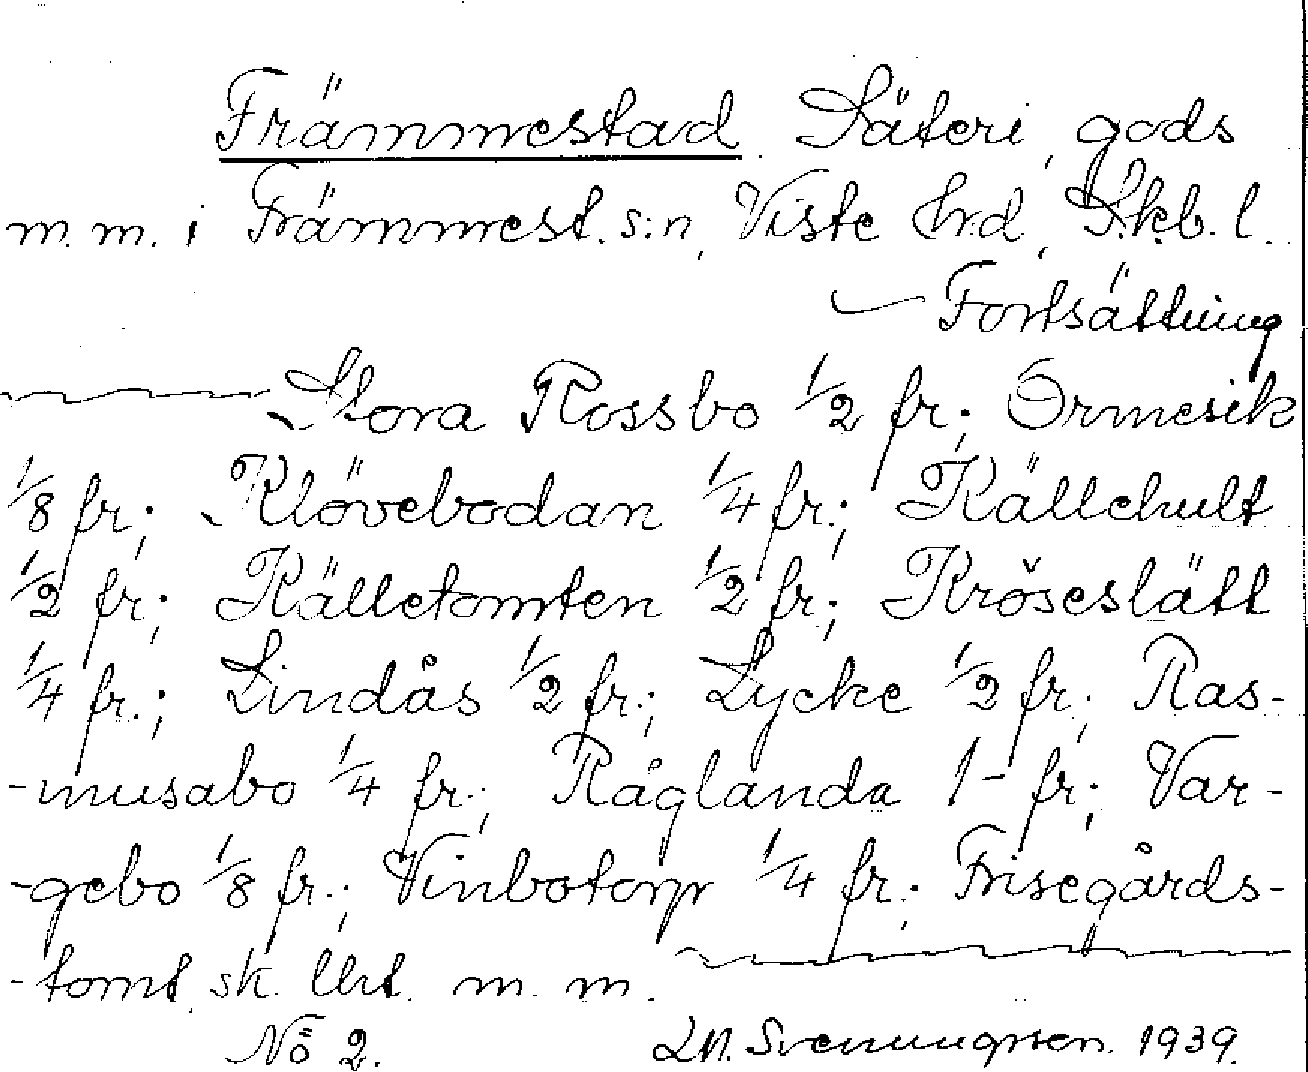 Främmestad. Säteri, gods
m. m. i Främmest. s:n, Viste hrd, Skb. l.
— Fortsättning
Stora Rossbo 1/2 fr.; Ormesik
1/8 fr.; Klövebodan 1/4 fr.; Källehult
1/2 fr.; Källetomten 1/2 fr.; Kröseslätt
1/4 fr.; Lindås 1/2 fr.; Lycke 1/2 fr.; Ras-
-musabo 1/4 fr.; Råglanda 1- fr.; Var-
-gebo 1/8 fr.; Vinbotorp 1/4 fr.; Frisegårds-
-tomt, sk. Uht. m. m.
No 2. Svenungsson. 1939.